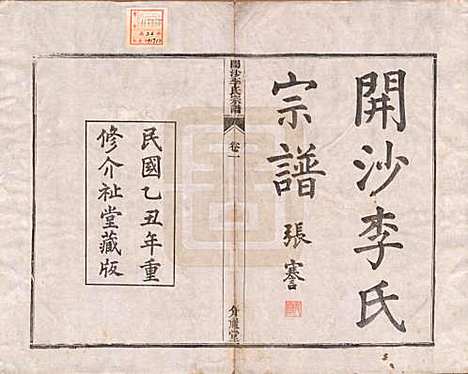 開沙李氏
宗譜
張謇
開沙李氏宗譜
卷一
介祉堂
民國乙丑年重
修介祉堂藏版